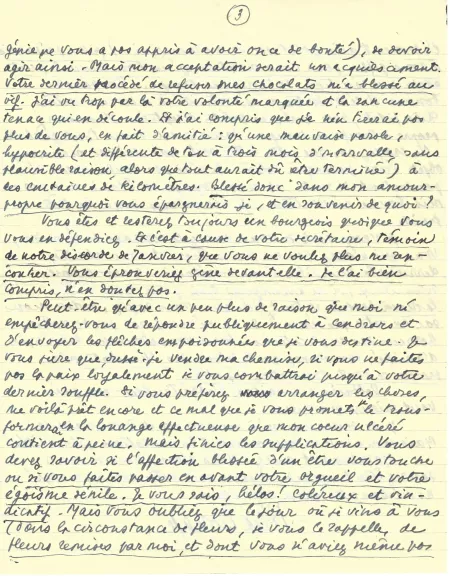 3
génie ne vous a pas appris à avoir once de bonté), de devoir
agir ainsi. Mais mon acceptation serait un acquiescement.
Votre dernier procédé de refuser mes chocolats m'a blessé au
vif. J'ai vu trop par là votre volonté marquée et la rancune
tenace qui en découle. Et j'ai compris que je n'en tirerai pas
plus de vous, en fait d'amitié : qu'une mauvaise parole,
hypocrite (et différente de ton à trois mois d'intervalle, sans
plausible raison alors que tout aurait dû être terminé) à
des centaines de kilomètres. Blessé donc dans mon amour-
propre pourquoi vous épargnerais-je, et en souvenir de quoi ?
Vous êtes et resterez toujours un bourgeois quoique vous
vous en défendiez. Et c'est à cause de votre secrétaire, témoin
de notre discorde de Janvier, que vous ne voulez plus me ren-
contrer. Vous éprouveriez gêne devant elle. Je l'ai bien
compris, n'en doutez pas.
Peut-être qu'avec un peu plus de raison que moi
empêcherez-vous de répondre publiquement à Cendrars et
d'envoyer les flèches empoisonnées que je vous destine. Je
vous jure que, dussé-je vendre ma chemise, si vous ne faites
pas la paix loyalement je vous combattrai jusqu'à votre
dernier souffle. Si vous préférez arranger les choses,
me voilà prêt encore et ce mal que je vous promets, le trans-
formerai en la louange affectueuse que mon cœur ulcéré
contient à peine. Mais finies les supplications. Vous
devez savoir si l'affection blessée d'un être vous touche
ou si vous faites passer en avant votre orgueil et votre
égoïsme sénile. Je vous sais, hélas ! coléreux et vin-
dicatif. Mais vous oubliez que le jour où je vins à vous
(dans la circonstance de fleurs, je vous le rappelle, de
fleurs remises par moi, et dont vous n'aviez même pas